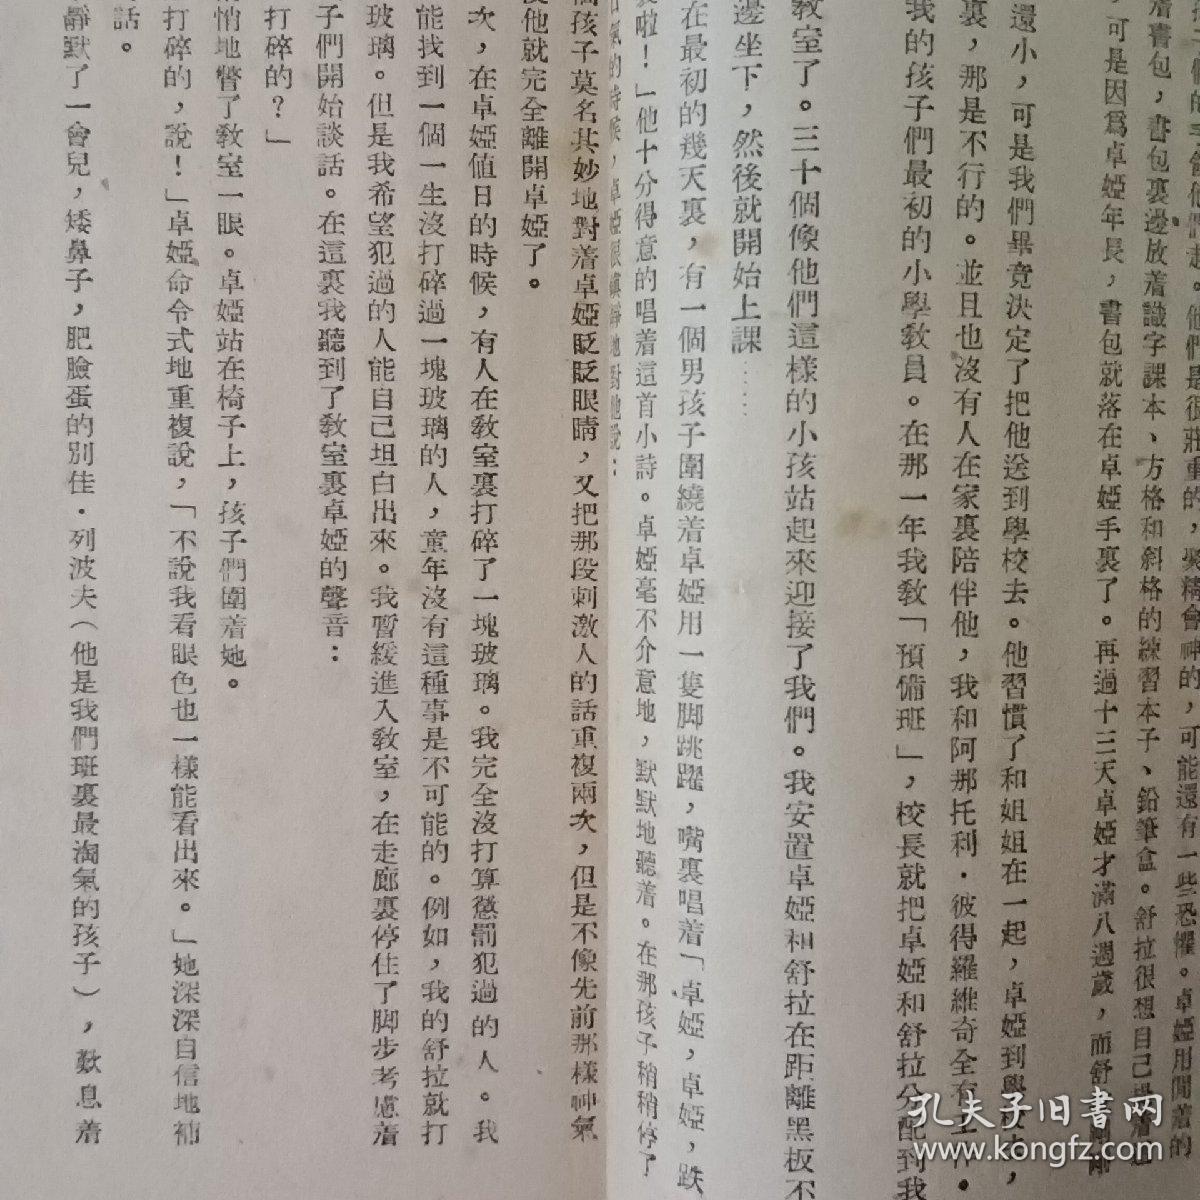 着書包，書包裏邊放着識字課本、方格和斜格的練習本子、鉛筆盒。舒拉很想自己
，可是因爲卓婭年長，書包就落在卓婭手裏了。再過十三天卓婭才滿八週歲，而舒
還小，可是我們畢竟決定了把他送到學校去。他習慣了和姐姐在一起，卓婭到學校去，
裏，那是不行的。並且也沒有人在家裏陪伴他，我和阿那托利·彼得羅維奇全有工作。
我的孩子們最初的小學敎員。在那一年我敎「預備班」，校長就把卓婭和舒拉分配到我
敎室了。三十個像他們這樣的小孩站起來迎接了我們。我安置卓婭和舒拉在距離黑板不
邊坐下，然後就開始上課……
在最初的幾天裏，有一個男孩子圍繞着卓婭用一隻脚跳躍，嘴裏唱着「卓婭，卓婭，跌
啦！」他十分得意的唱着這首小詩。卓婭毫不介意地，默默地聽着。在那孩子稍稍停了
的時候，卓婭很鎮靜地對他說：
孩子莫名其妙地對着卓婭眨眨眼睛，又把那段刺激人的話重複兩次，但是不像先前那樣神氣
他就完全離開卓婭了。
次，在卓婭值日的時候，有人在敎室裏打碎了一塊玻璃。我完全沒打算懲罰犯過的人。我
能找到一個一生沒打碎過一塊玻璃的人，童年沒有這種事是不可能的。例如，我的舒拉就打
玻璃。但是我希望犯過的人能自己坦白出來。我暫緩進入敎室，在走廊裏停住了脚步考慮着
子們開始談話。在這裏我聽到了敎室裏卓婭的聲音：
打碎的？」
悄地瞥了敎室一眼。卓婭站在椅子上，孩子們圍着她。
打碎的，說！」卓婭命令式地重複說，「不說我看眼色也一樣能看出來。」她深深自信地補
話。
靜默了一會兒，矮鼻子，肥臉蛋的別佳·列波夫（他是我們班裏最淘氣的孩子），歎息着
孔夫子旧書网
www.kongfz.com